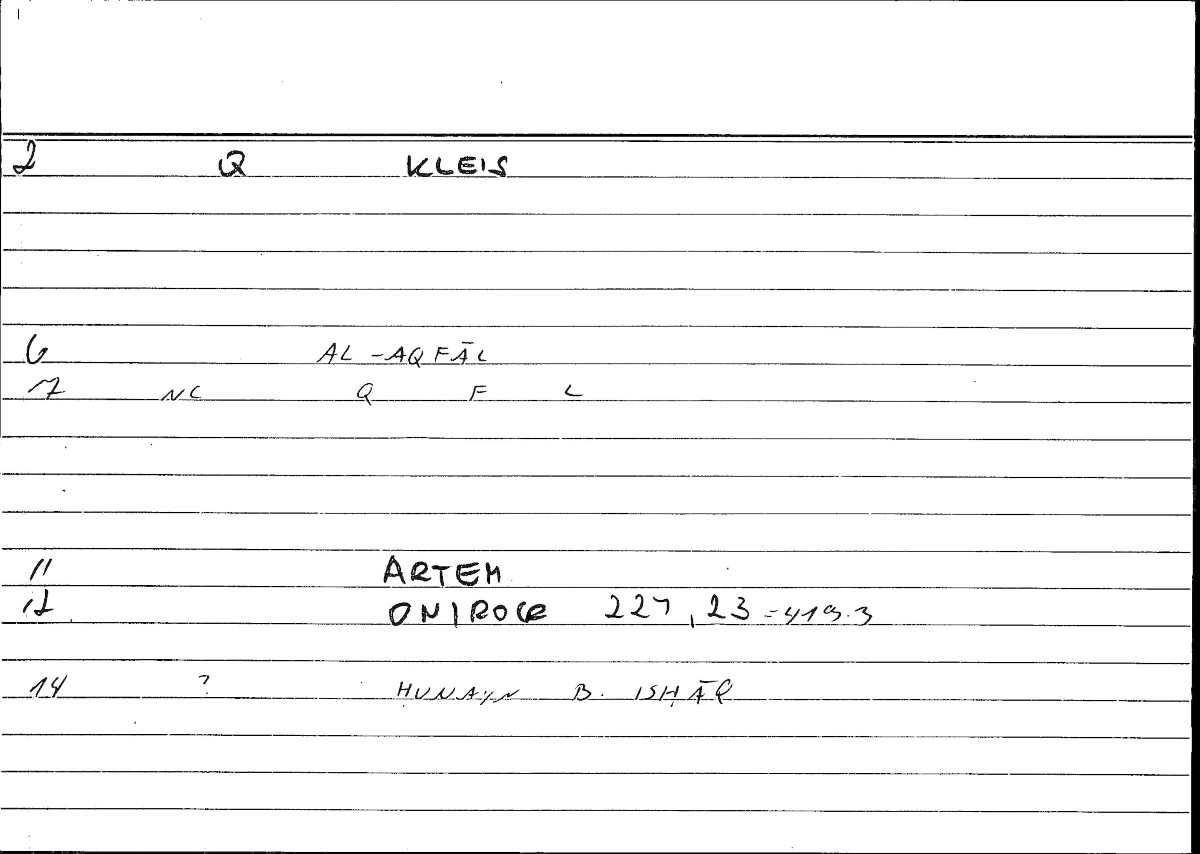 2 Q KLEIS
6 AL-AQFĀL
7 NC Q F L
11 ARTEM
12 ONIROCR 227,23 = 419.3
14 ? ḤUNAYN B. ISḤĀQ